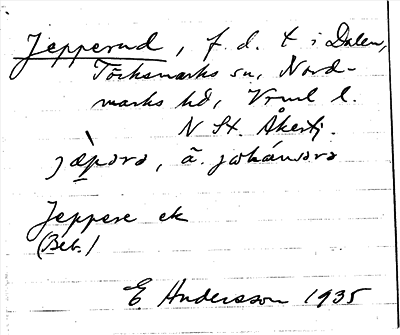 Jepperud, f. d. t i Dalen,
Töcksmarks sn, Nord-
marks hd, Vrml l.
N St. Åkertj.
jæ̀pərə, ä. johánsərə
Jeppere ek
(Beb.)
E Andersson 1935